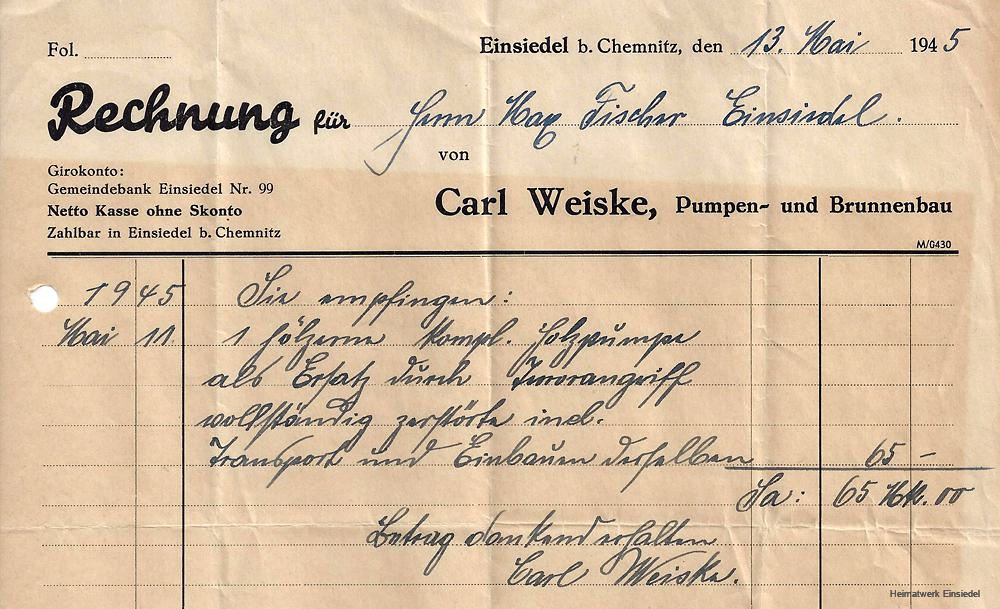 Fol.
Einsiedel b. Chemnitz, den 13. Mai 1945
Rechnung für Herrn Max Fischer Einsiedel.
von
Girokonto:
Gemeindebank Einsiedel Nr. 99
Netto Kasse ohne Skonto
Zahlbar in Einsiedel b. Chemnitz
Carl Weiske, Pumpen- und Brunnenbau
M/0430
1945 Sie empfingen:
Mai 11. 1 hölzerne kompl. Holzpumpe
als Ersatz durch Terrorangriff
vollständig zerstörte incl.
Transport und Einbauen derselben 65 –
Sa: 65 Mk. 00
Betrag dankend erhalten
Carl Weiske.
Heimatwerk Einsiedel